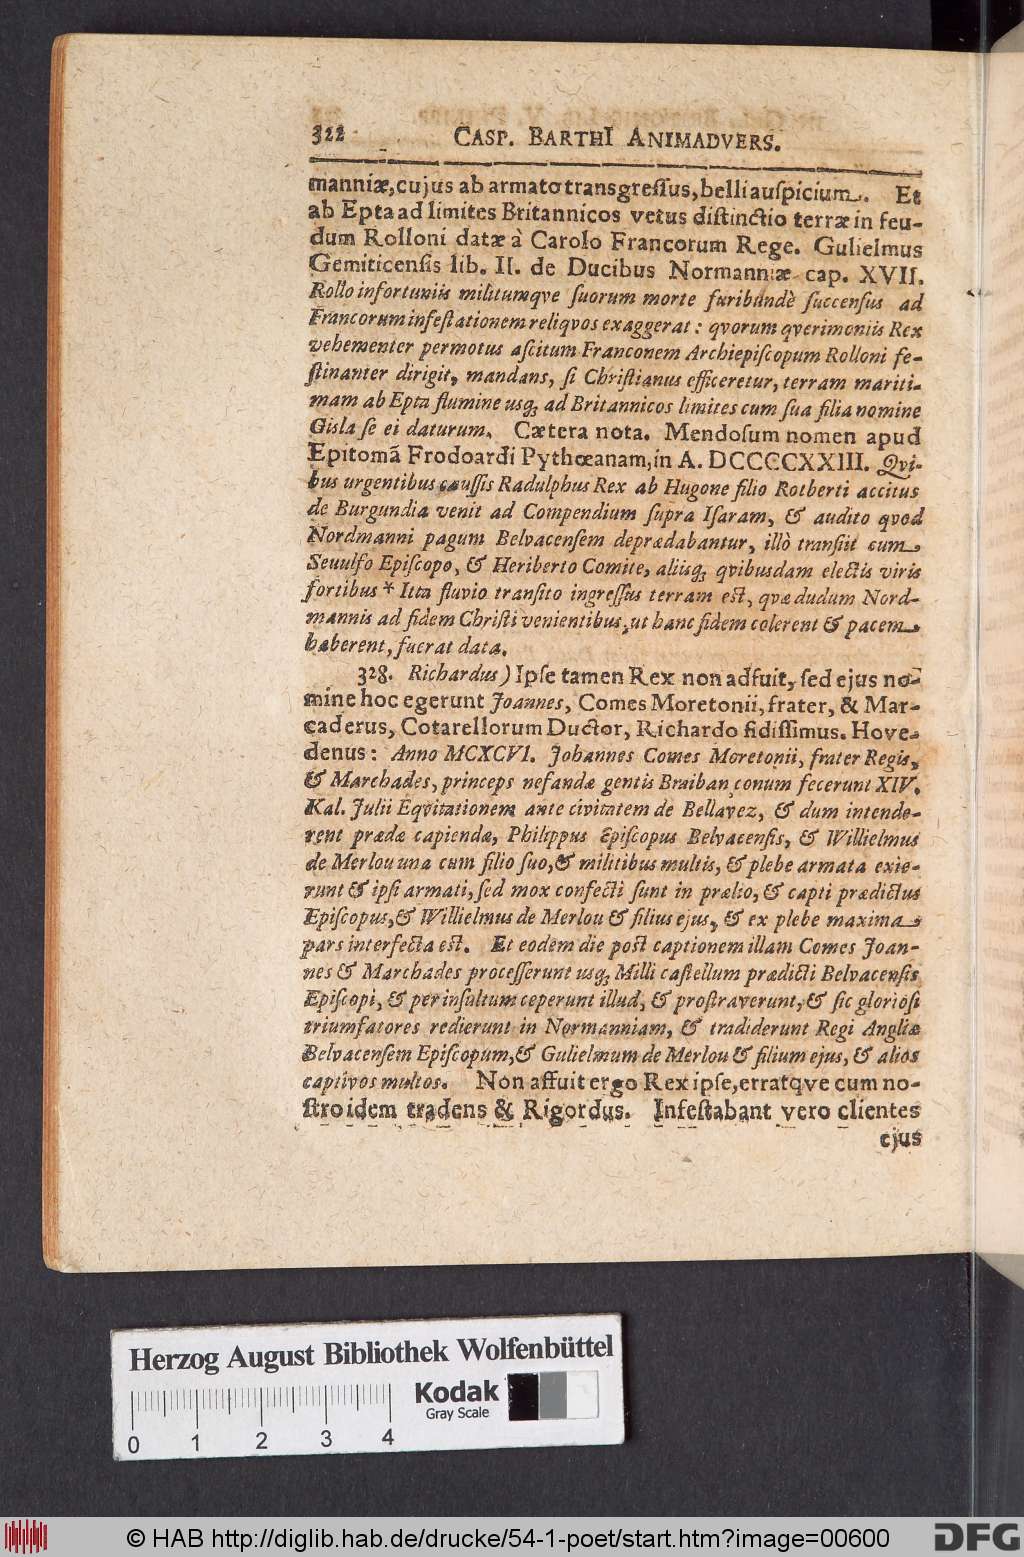 322 CASP. BARTHI ANIMADVERS.
manniæ, cujus ab armato transgreſſus, belli auſpicium. Et
ab Epta ad limites Britannicos vetus diſtinctio terræ in feu-
dum Rolloni datæ à Carolo Francorum Rege. Gulielmus
Gemiticenſis lib. II. de Ducibus Normanniæ cap. XVII.
Rollo infortuniis militumqve ſuorum morte furibundè ſuccenſus ad
Francorum infeſtationem reliqvos exaggerat: qvorum qverimoniis Rex
vehementer permotus aſcitum Franconem Archiepiſcopum Rolloni fe-
ſtinanter dirigit, mandans, ſi Chriſtianus efficeretur, terram mariti-
mam ab Epta flumine usq; ad Britannicos limites cum ſua filia nomine
Gisla ſe ei daturum. Cætera nota. Mendoſum nomen apud
Epitomã Frodoardi Pythœanam, in A. DCCCCXXIII. Qvi-
bus urgentibus cauſſis Radulphus Rex ab Hugone filio Rotberti accitus
de Burgundia venit ad Compendium ſupra Iſaram, & audito qvod
Nordmanni pagum Belvacenſem deprædabantur, illò tranſiit cum
Seuulfo Epiſcopo, & Heriberto Comite, aliisq; qvibusdam electis viris
fortibus * Itta fluvio tranſito ingreſſus terram eſt, qvæ dudum Nord-
mannis ad fidem Chriſti venientibus, ut hanc fidem colerent & pacem
haberent, fuerat data.
328. Richardus) Ipſe tamen Rex non adfuit, ſed ejus no-
mine hoc egerunt Joannes, Comes Moretonii, frater, & Mar-
caderus, Cotarellorum Ductor, Richardo fidiſſimus. Hove-
denus: Anno MCXCVI. Johannes Comes Moretonii, frater Regis,
& Marchades, princeps nefandæ gentis Braibançonum fecerunt XIV.
Kal. Julii Eqvitationem ante civitatem de Bellavez, & dum intende-
rent prædæ capiendæ, Philippus Epiſcopus Belvacenſis, & Willielmus
de Merlou una cum filio ſuo, & militibus multis, & plebe armata exie-
runt & ipſi armati, ſed mox confecti ſunt in prælio, & capti prædictus
Epiſcopus, & Willielmus de Merlou & filius ejus, & ex plebe maxima
pars interfecta eſt. Et eodem die poſt captionem illam Comes Joan-
nes & Marchades proceſſerunt usq; Milli caſtellum prædicti Belvacenſis
Epiſcopi, & per inſultum ceperunt illud, & proſtraverunt, & ſic glorioſi
triumfatores redierunt in Normanniam, & tradiderunt Regi Angliæ
Belvacenſem Epiſcopum, & Gulielmum de Merlou & filium ejus, & alios
captivos multos. Non affuit ergo Rex ipſe, erratqve cum no-
ſtro idem tradens & Rigordus. Infeſtabant vero clientes
ejus
Herzog August Bibliothek Wolfenbüttel
Kodak
Gray Scale
0 1 2 3 4
© HAB http://diglib.hab.de/drucke/54-1-poet/start.htm?image=00600
DFG